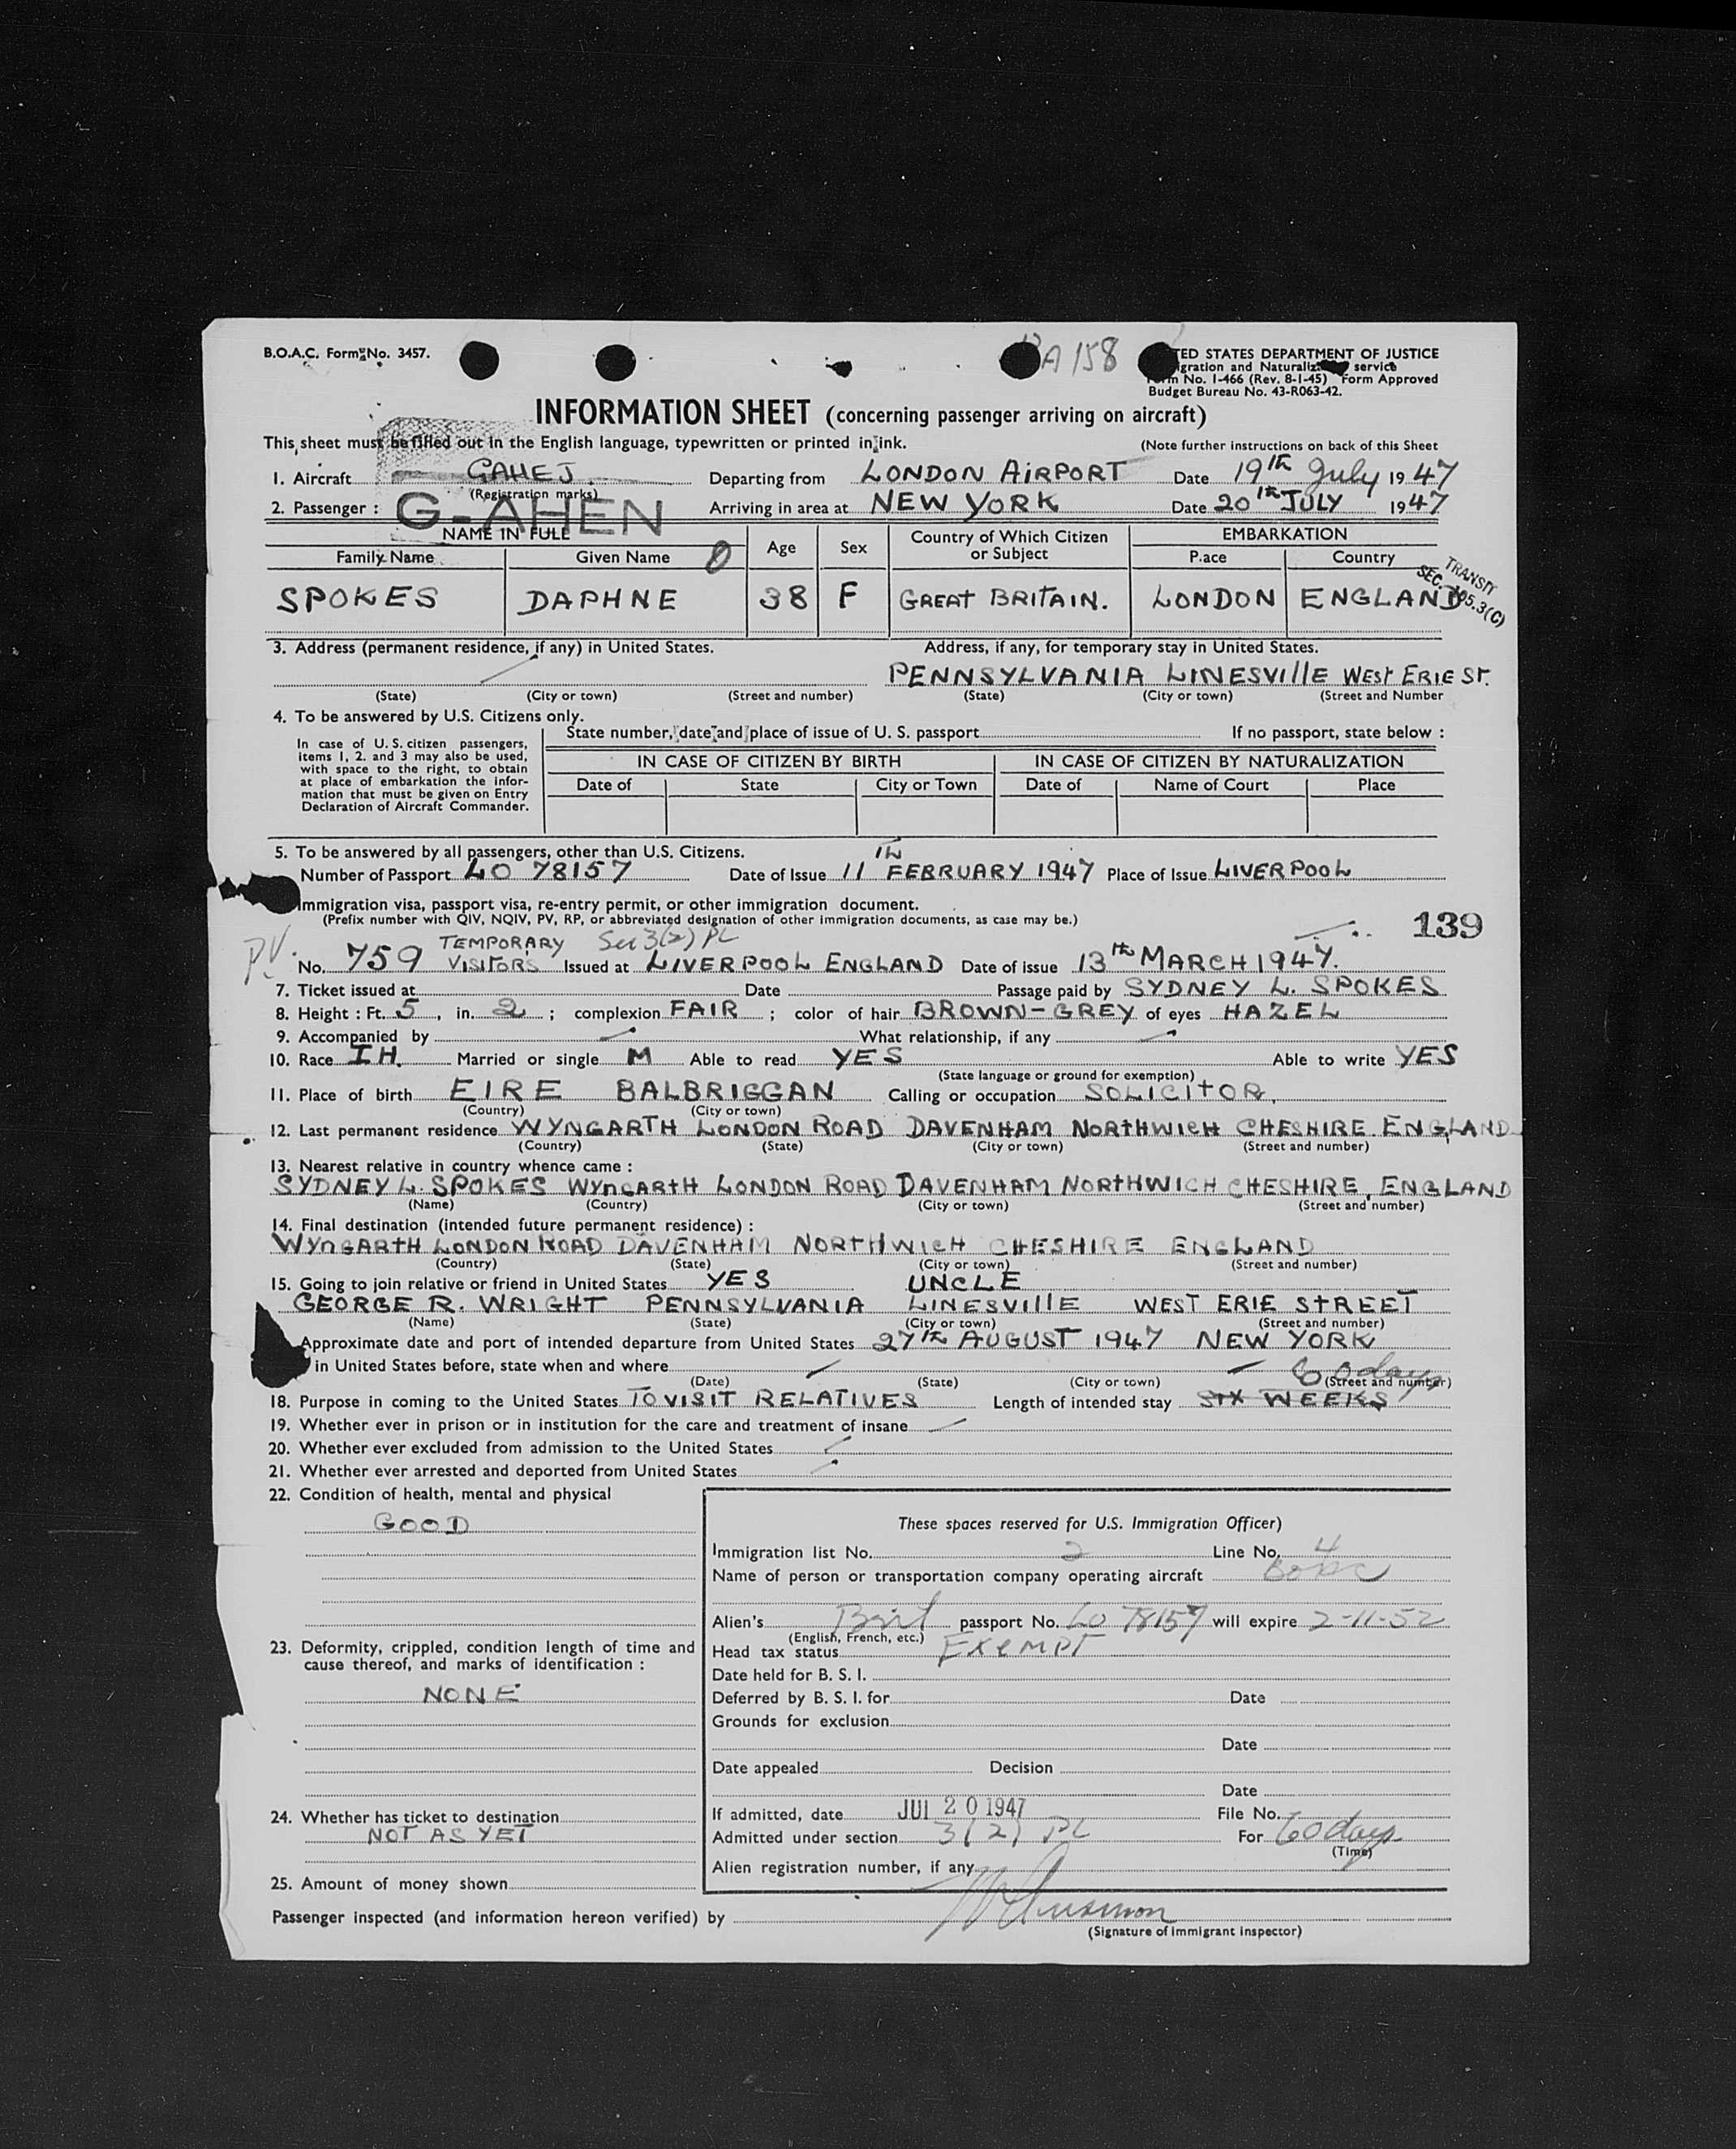 B.O.A.C. Form No. 3457.
A 158
TED STATES DEPARTMENT OF JUSTICE
service
No. I-466 (Rev. 8-1-45) Form Approved
Budget Bureau No. 43-R063-42.
INFORMATION SHEET (concerning passenger arriving on aircraft)
This sheet must be filled out in the English language, typewritten or printed in ink. (Note further instructions on back of this Sheet
1. Aircraft GAHEJ Departing from LONDON AIRPORT Date 19th July 1947
(Registration marks)
2. Passenger : G-AHEN Arriving in area at NEW YORK Date 20th JULY 1947
NAME IN FULL Age Sex Country of Which Citizen or Subject EMBARKATION
Family Name Given Name P.ace Country
TRANSIT
SEC. 105.3(C)
SPOKES DAPHNE 38 F GREAT BRITAIN. LONDON ENGLAND
3. Address (permanent residence, if any) in United States. Address, if any, for temporary stay in United States.
PENNSYLVANIA LINESVIllE WEST ERIE ST.
(State) (City or town) (Street and number) (State) (City or town) (Street and Number
4. To be answered by U.S. Citizens only.
State number, date and place of issue of U. S. passport If no passport, state below :
In case of U. S. citizen passengers,
items 1, 2. and 3 may also be used,
with space to the right, to obtain
at place of embarkation the infor-
mation that must be given on Entry
Declaration of Aircraft Commander.
IN CASE OF CITIZEN BY BIRTH IN CASE OF CITIZEN BY NATURALIZATION
Date of State City or Town Date of Name of Court Place
5. To be answered by all passengers, other than U.S. Citizens.
Number of Passport LO 78157 Date of Issue 11th FEBRUARY 1947 Place of Issue LIVERPOOL
Immigration visa, passport visa, re-entry permit, or other immigration document.
(Prefix number with QIV, NQIV, PV, RP, or abbreviated designation of other immigration documents, as case may be.)
139
PV. TEMPORARY Sec 3(2) PL
No. 759 VISITOR'S Issued at LIVERPOOL ENGLAND Date of issue 13th MARCH 1947.
7. Ticket issued at Date Passage paid by SYDNEY L. SPOKES
8. Height : Ft. 5, in. 2 ; complexion FAIR ; color of hair BROWN-GREY of eyes HAZEL
9. Accompanied by What relationship, if any
10. Race IH. Married or single M Able to read YES Able to write YES
(State language or ground for exemption)
11. Place of birth EIRE BALBRIGGAN Calling or occupation SOLICITOR,
(Country) (City or town)
12. Last permanent residence WYNGARTH LONDON ROAD DAVENHAM NORTHWICH CHESHIRE ENGLAND
(Country) (State) (City or town) (Street and number)
13. Nearest relative in country whence came :
SYDNEY L. SPOKES WYNGARTH LONDON ROAD DAVENHAM NORTHWICH CHESHIRE, ENGLAND
(Name) (Country) (City or town) (Street and number)
14. Final destination (intended future permanent residence) :
WYNGARTH LONDON ROAD DAVENHAM NORTHWICH CHESHIRE ENGLAND
(Country) (State) (City or town) (Street and number)
15. Going to join relative or friend in United States YES UNCLE
GEORGE R. WRIGHT PENNSYLVANIA LINESVIllE WEST ERIE STREET
(Name) (State) (City or town) (Street and number)
Approximate date and port of intended departure from United States 27th AUGUST 1947 NEW YORK
in United States before, state when and where 60 days
(Date) (State) (City or town) (Street and number)
18. Purpose in coming to the United States TO VISIT RELATIVES Length of intended stay SIX WEEKS
19. Whether ever in prison or in institution for the care and treatment of insane
20. Whether ever excluded from admission to the United States
21. Whether ever arrested and deported from United States
22. Condition of health, mental and physical
GOOD
23. Deformity, crippled, condition length of time and
cause thereof, and marks of identification :
NONE
24. Whether has ticket to destination
NOT AS YET
25. Amount of money shown
These spaces reserved for U.S. Immigration Officer)
Immigration list No. 2 Line No. 4
Name of person or transportation company operating aircraft BOAC
Alien's Brit passport No. LO 78157 will expire 2-11-52
(English, French, etc.)
Head tax status EXEMPT
Date held for B. S. I.
Deferred by B. S. I. for Date
Grounds for exclusion
Date
Date appealed Decision
Date
If admitted, date JUL 20 1947 File No.
Admitted under section 3(2) PL For 60 days
(Time)
Alien registration number, if any
Passenger inspected (and information hereon verified) by
(Signature of Immigrant Inspector)